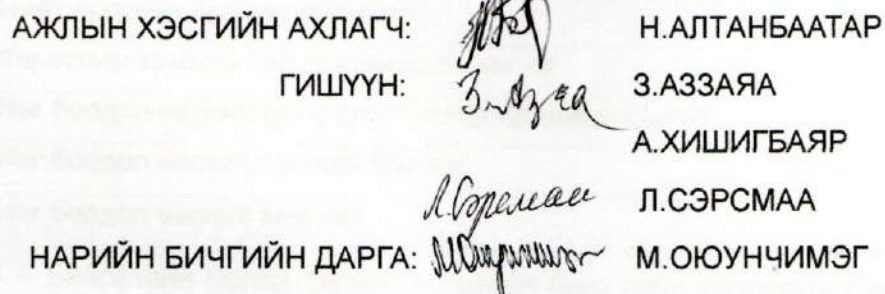 АЖЛЫН ХЭСГИЙН АХЛАГЧ: Н.АЛТАНБААТАР
ГИШҮҮН: З.АЗЗАЯА
А.ХИШИГБАЯР
Л.СЭРСМАА
НАРИЙН БИЧГИЙН ДАРГА: М.ОЮУНЧИМЭГ